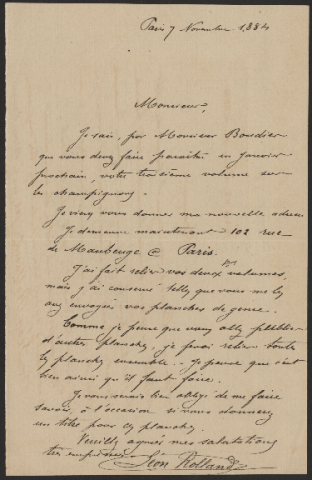 Paris 7 Novembre 1884
Monsieur,
Je sais, par Monsieur Boudier
que vous devez faire paraître en Janvier
prochain, votre troisième volume sur
les champignons.
Je viens vous donner ma nouvelle adresse
Je demeure maintenant 102 rue
de Maubeuge à Paris.
J'ai fait relier vos deux volumes,
mais j'ai conservé telles que vous me les
avez envoyées vos planches de genre.
Comme je pense que vous allez publier
d'autres planches, je ferai relier toute
les planches ensemble. Je pense que c'est
bien ainsi qu'il faut faire.
Je vous serais bien obligé de me faire
savoir, à l'occasion si vous donnerez
un titre pour ces planches.
Veuillez agréer mes salutations
très empressées
Léon Rolland